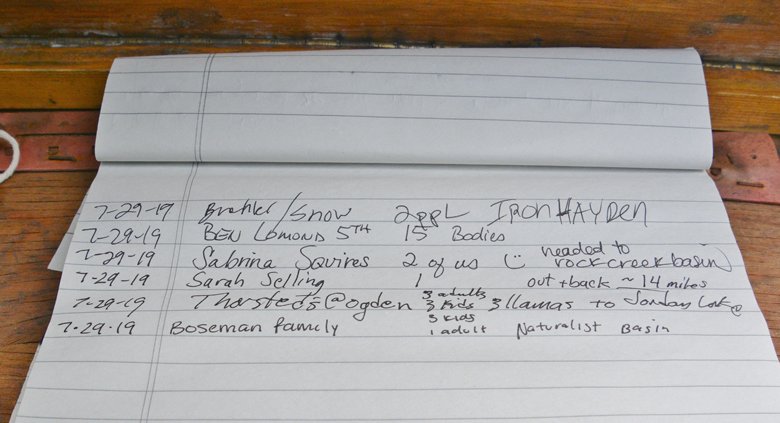 7-29-19 /Snow 2ppl IRON HAYDEN
7-29-19 BEN LOMOND 5TH 15 Bodies
7-29-19 Sabrina Squires 2 of us (: headed to rock creek basin)
7-29-19 Sarah Selling 1 out + back ~ 14 miles
7-29-19 Thorsted's @ ogden 3 adults 3 kids 3 llamas to Jordan Lake
7-29-19 Boseman family 3 kids 1 adult Naturalist Basin